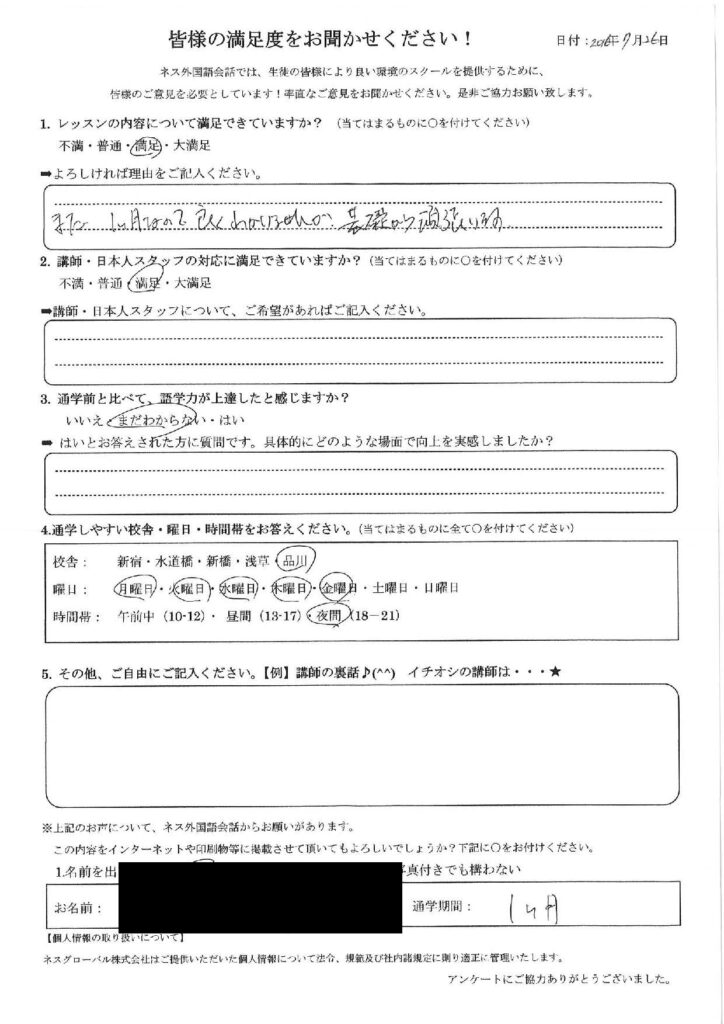 皆様の満足度をお聞かせください！
日付：2016年7月26日
ネス外国語会話では、生徒の皆様により良い環境のスクールを提供するために、
皆様のご意見を必要としています！率直なご意見をお聞かせください。是非ご協力お願い致します。
1. レッスンの内容について満足できていますか？（当てはまるものに○を付けてください）
不満・普通・満足・大満足
➡よろしければ理由をご記入ください。
まだ 1ヶ月なので 良くわかりませんが、基礎から頑張います
2. 講師・日本人スタッフの対応に満足できていますか？（当てはまるものに○を付けてください）
不満・普通・満足・大満足
➡講師・日本人スタッフについて、ご希望があればご記入ください。
3. 通学前と比べて、語学力が上達したと感じますか？
いいえ・まだわからない・はい
➡ はいとお答えされた方に質問です。具体的にどのような場面で向上を実感しましたか？
4.通学しやすい校舎・曜日・時間帯をお答えください。（当てはまるものに全て○を付けてください）
校舎： 新宿・水道橋・新橋・浅草・品川
曜日： 月曜日・火曜日・水曜日・木曜日・金曜日・土曜日・日曜日
時間帯： 午前中（10-12）・ 昼間（13-17）・夜間（18－21）
5. その他、ご自由にご記入ください。【例】講師の裏話♪(^^) イチオシの講師は・・・★
※上記のお声について、ネス外国語会話からお願いがあります。
この内容をインターネットや印刷物等に掲載させて頂いてもよろしいでしょうか？下記に○をお付けください。
1.名前を出 真付きでも構わない
お名前： 通学期間： 1ヶ月
【個人情報の取り扱いについて】
ネスグローバル株式会社はご提供いただいた個人情報について法令、規範及び社内諸規定に則り適正に管理いたします。
アンケートにご協力ありがとうございました。